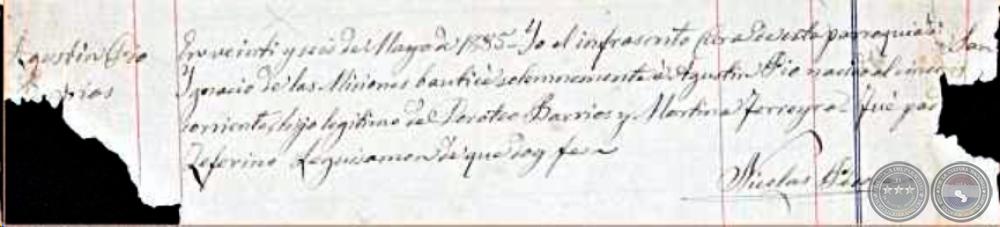 Agustin Pio
Barrios
En veinti y seis de Mayo de 1885 - Yo el infrascrito Cura de esta parroquia de San
Ygnacio de las Misiones bauticé solemnemente á Agustin Pio nacido al cinco
corriente, hijo legitimo de Doroteo Barrios y Martina Ferreyra. Fué pad
Zeferino Leguisamon de que doy fe =
Nicolas